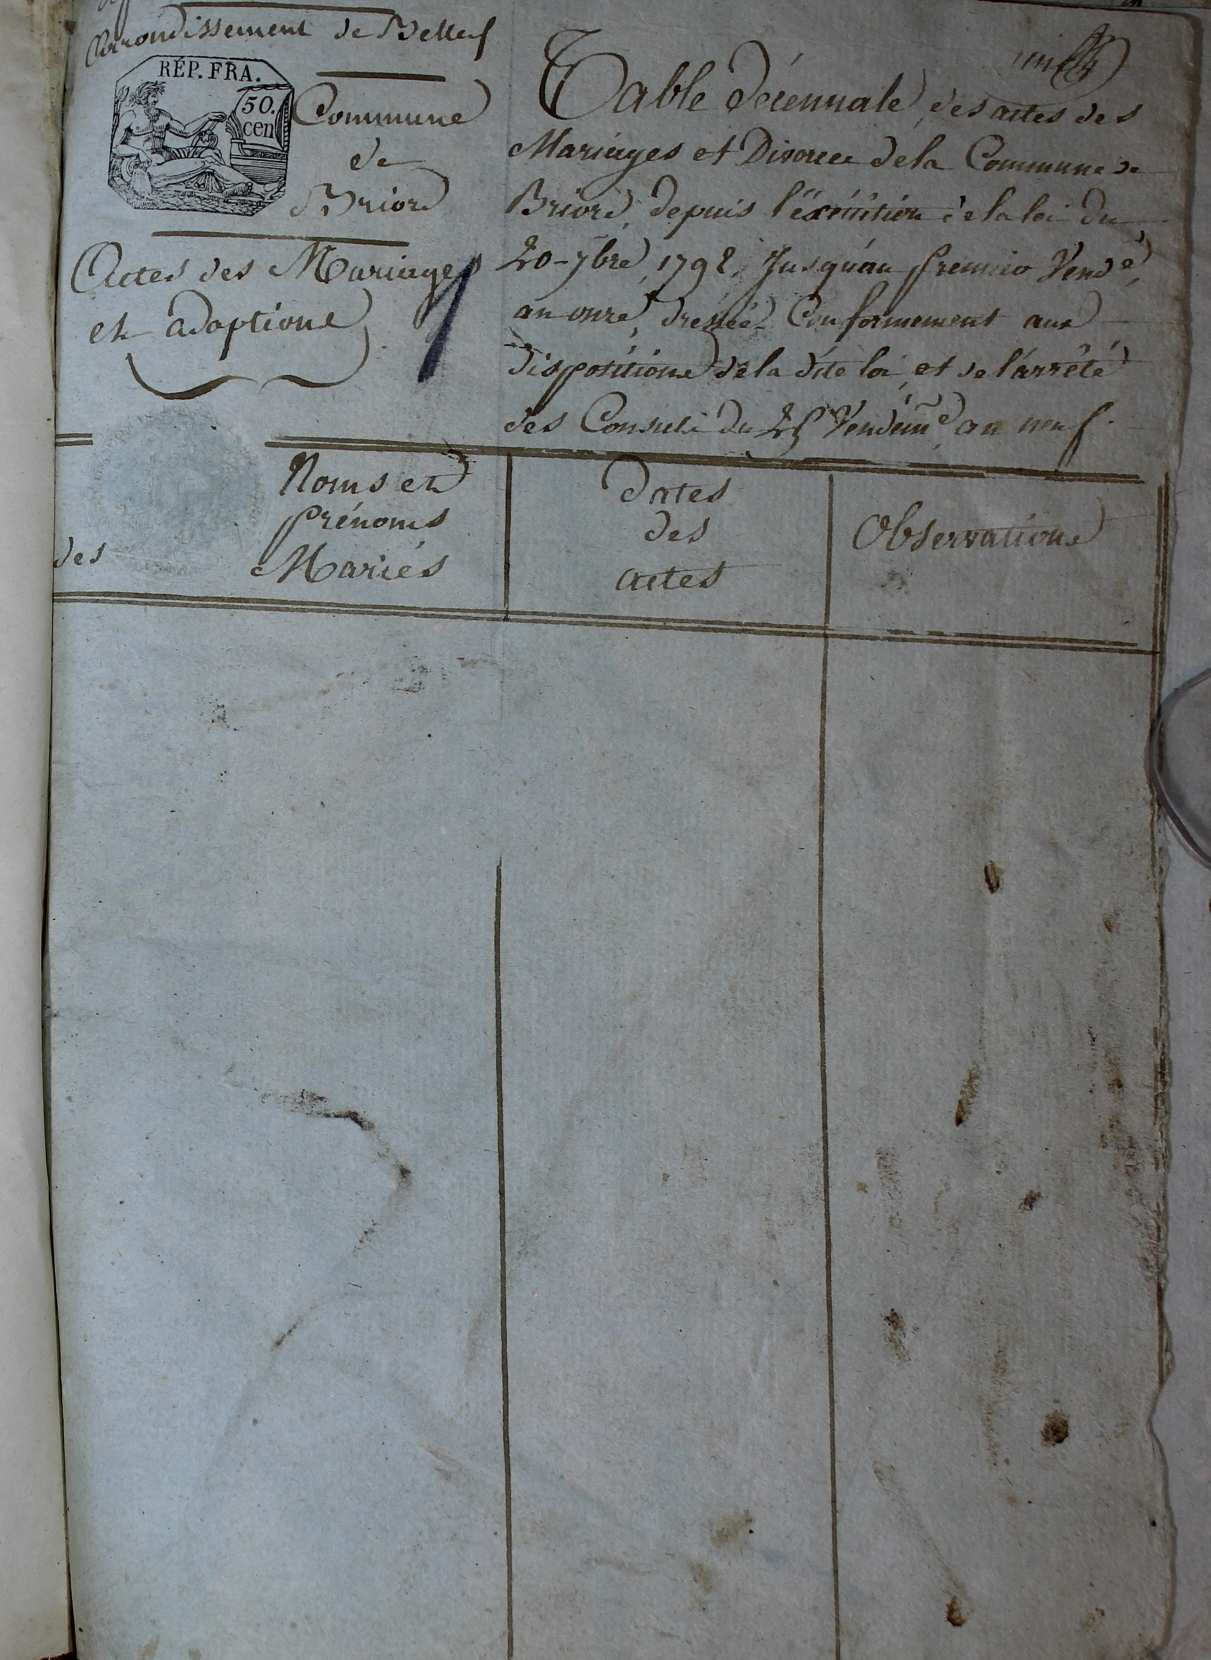 Arrondissement de Belley
RÉP. FRA.
50.
cen
Commune
de
Briord
Actes des Mariages
et adoptions
Table décennale des actes des
Mariages et Divorces de la Commune de
Briord, depuis l'éxécution de la loi du
20 7bre 1792, Jusqu'au premier Vendre
an onze, dressée Conformement aux
dispositions de la dite loi, et de l'arrêté
des Consuls du 25 Vendemre an neuf.
des
Noms et
prénoms
Mariés
Dates
des
actes
Observations